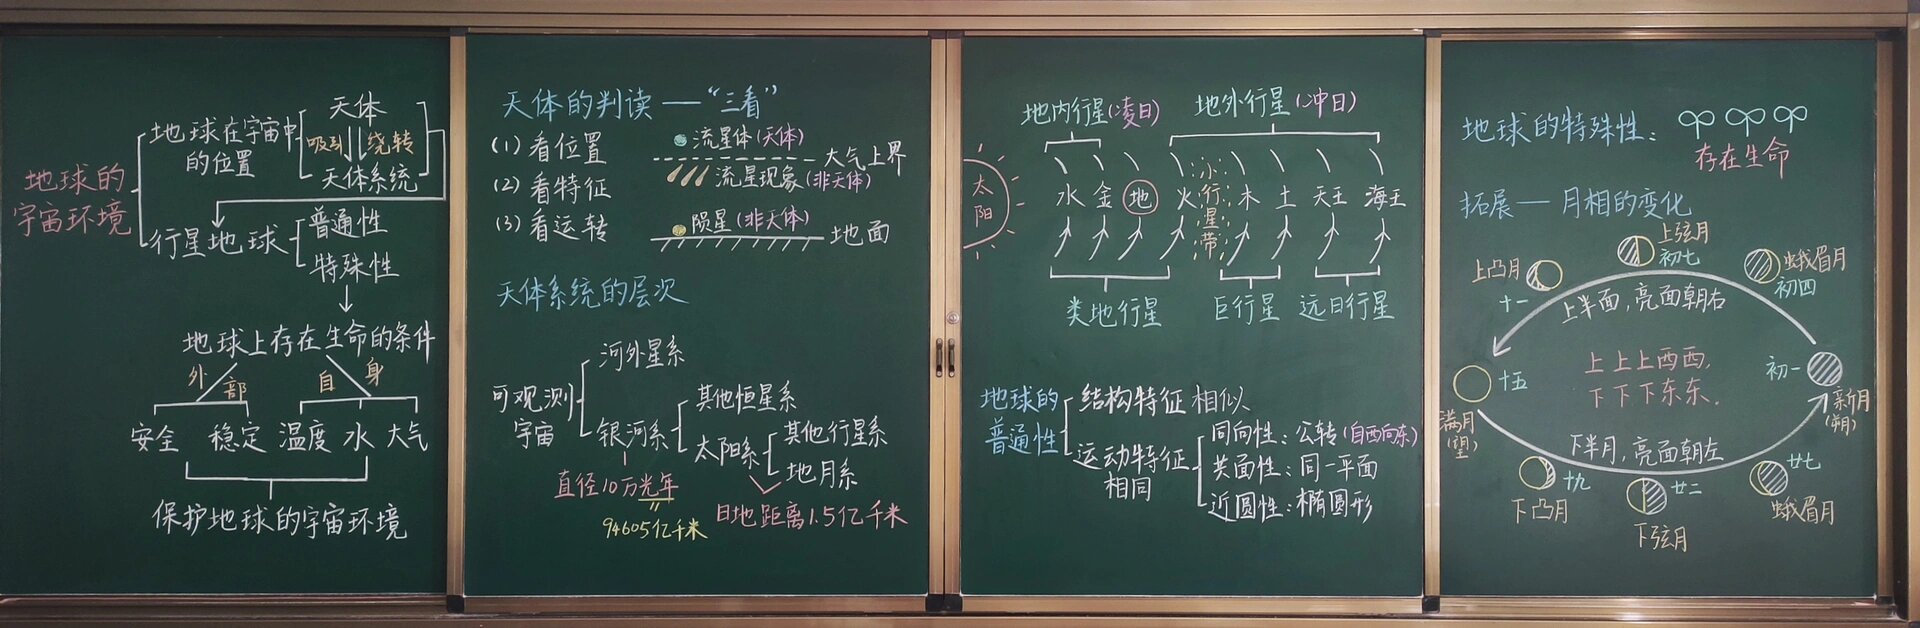 地球的
宇宙环境
地球在宇宙中
的位置
天体
吸引 绕转
天体系统
行星地球
普通性
特殊性
地球上存在生命的条件
外部
自身
安全 稳定 温度 水 大气
保护地球的宇宙环境
天体的判读——“三看”
(1) 看位置
(2) 看特征
(3) 看运转
流星体(天体)
大气上界
流星现象(非天体)
陨星(非天体)
地面
天体系统的层次
可观测
宇宙
河外星系
银河系
直径10万光年
94605亿千米
其他恒星系
太阳系
其他行星系
地月系
日地距离1.5亿千米
地内行星(凌日)
地外行星(冲日)
太阳
水 金 地 火 小行星带 木 土 天王 海王
类地行星 巨行星 远日行星
地球的
普通性
结构特征相似
运动特征
相同
同向性：公转(自西向东)
共面性：同一平面
近圆性：椭圆形
地球的特殊性：
存在生命
拓展——月相的变化
上弦月
初七
上凸月
十一
蛾眉月
初四
上半面,亮面朝右
上上上西西,
下下下东东.
初一
新月
(朔)
十五
满月
(望)
下半月,亮面朝左
十九
下凸月
廿二
下弦月
廿七
蛾眉月